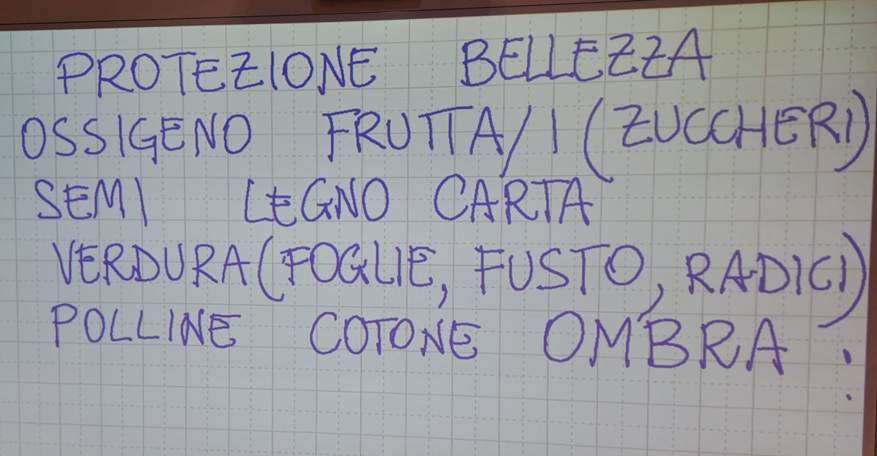 PROTEZIONE BELLEZZA
OSSIGENO FRUTTA/I (ZUCCHERI)
SEMI LEGNO CARTA
VERDURA (FOGLIE, FUSTO, RADICI)
POLLINE COTONE OMBRA :